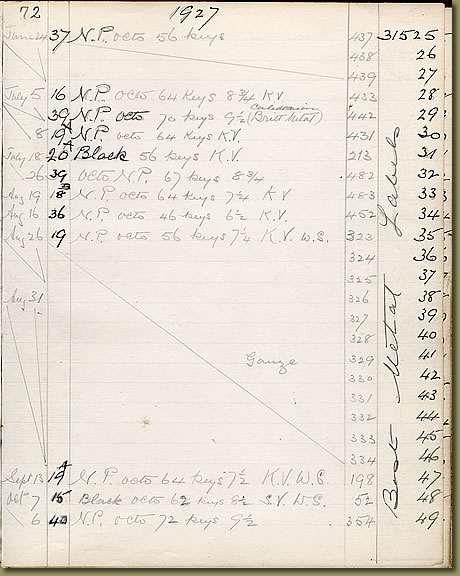 72 1927
June 24 37 N.P. octo 56 keys 437 31525
438 26
439 27
July 5 16 N.P. octo 64 keys 8 3/4 K.V 433 28
39 N.P. octo 70 keys 9 1/2 (Caledonian Britt Metal) 442 29
8 19A N.P. octo 64 Keys K.V. 431 30
July 18 20A Black 56 keys K.V. 213 31
26 39 octo N.P. 67 keys 8 3/4 482 32
Aug 19 18B N.P. octo 64 keys 7 1/4 K V 483 33
Aug 16 36 N.P. octo 46 keys 6 1/2 K.V. 452 34
Aug 26 19 N.P. octo 56 keys 7 1/4 K.V. W.S. 323 35
324 36
325 37
Aug 31 326 38
327 39
328 40
Gauze 329 41
330 42
331 43
332 44
333 45
334 46
Sept 13 19A N.P. octo 64 keys 7 1/2 K.V. W.S. 198 47
Oct 7 15 Black octo 62 keys 8 1/2 S.V. W.S. 52 48
6 40 N.P. octo 72 keys 9 1/2 354 49
Best Metal Labels